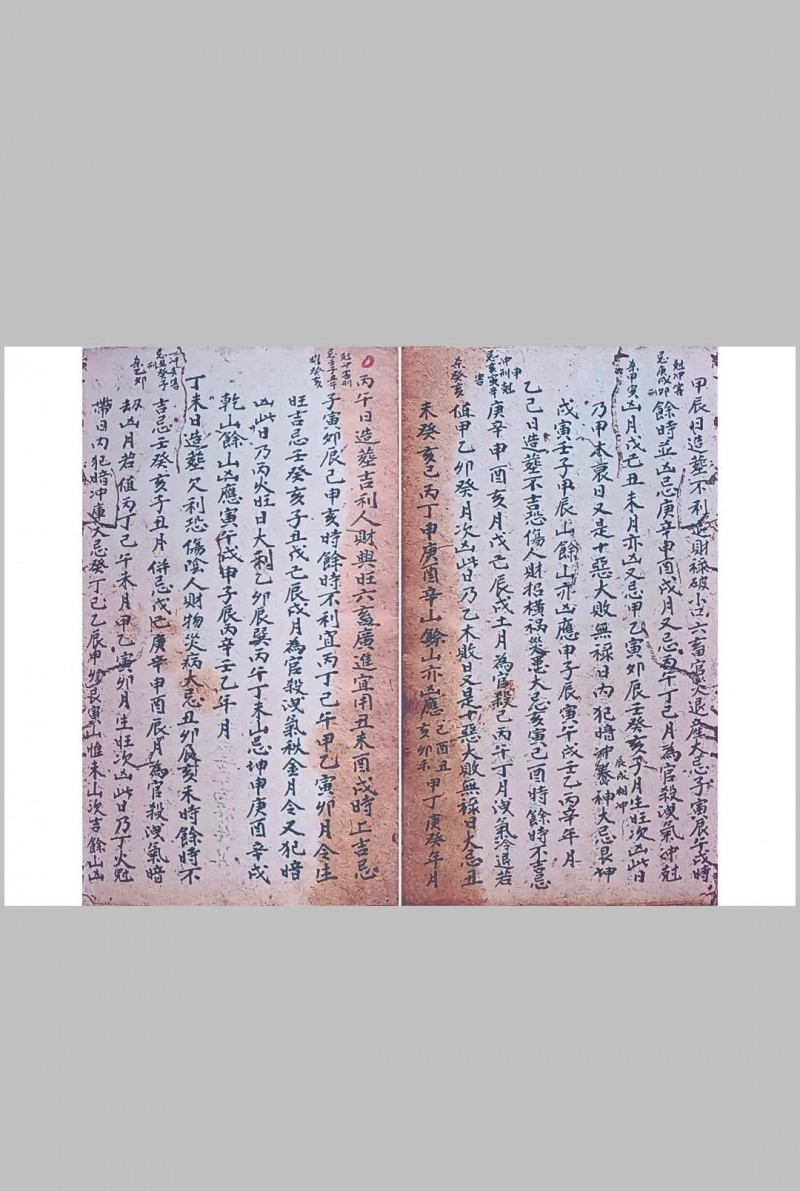 甲辰日造塟不利退財祿破小口六畜官災退產大忌子寅辰午戌時
尅冲害
忌庚戌卯
刑
餘時並凶忌庚辛申酉戌月又忌丙午丁己月為官殺洩氣冲尅
凶月戊己丑未月亦凶又忌甲乙寅卯辰壬癸亥子月生旺次凶此日
乃甲木衰日又是十惡大敗無祿日內犯暗冲養神大忌艮坤
辰戌相冲
戊寅壬子甲辰山餘山亦凶應甲子辰寅午戌壬乙丙辛年月
乙己日造塟不吉恐傷人財招橫禍災患大忌亥寅己酉時餘時不吉忌
庚辛申酉亥月戊己辰戌土月為官殺己丙午丁月洩氣冷退若
值甲乙卯癸月次凶此日乃乙木敗日又是十惡大敗無祿日大忌丑
未癸亥己丙丁申庚酉辛山餘山亦凶應
己酉丑
亥卯未
甲丁庚癸年月
丙午日造塟吉利人財興旺六畜廣進宜用丑未酉戌時上吉忌
子寅卯辰己申亥時餘時不利宜丙丁己午甲乙寅卯月令生
旺吉忌壬癸亥子丑戊己辰戌月為官殺洩氣秋金月令又犯暗
凶此日乃丙火旺日大利乙卯辰巽丙午丁未山忌坤申庚酉辛戌
乾山餘山凶應寅午戌甲子辰丙辛壬乙年月
丁未日造塟欠利恐傷陰人財物災病大忌丑卯辰亥未時餘時不
吉忌壬癸亥子丑月併忌戊己庚辛申酉辰月為官殺洩氣暗
刼凶月若值丙丁己午未月甲乙寅卯月生旺次凶此日乃丁火冠
帶日內犯暗冲庫大忌癸丁己乙辰申卯艮寅山惟未山次吉餘山凶